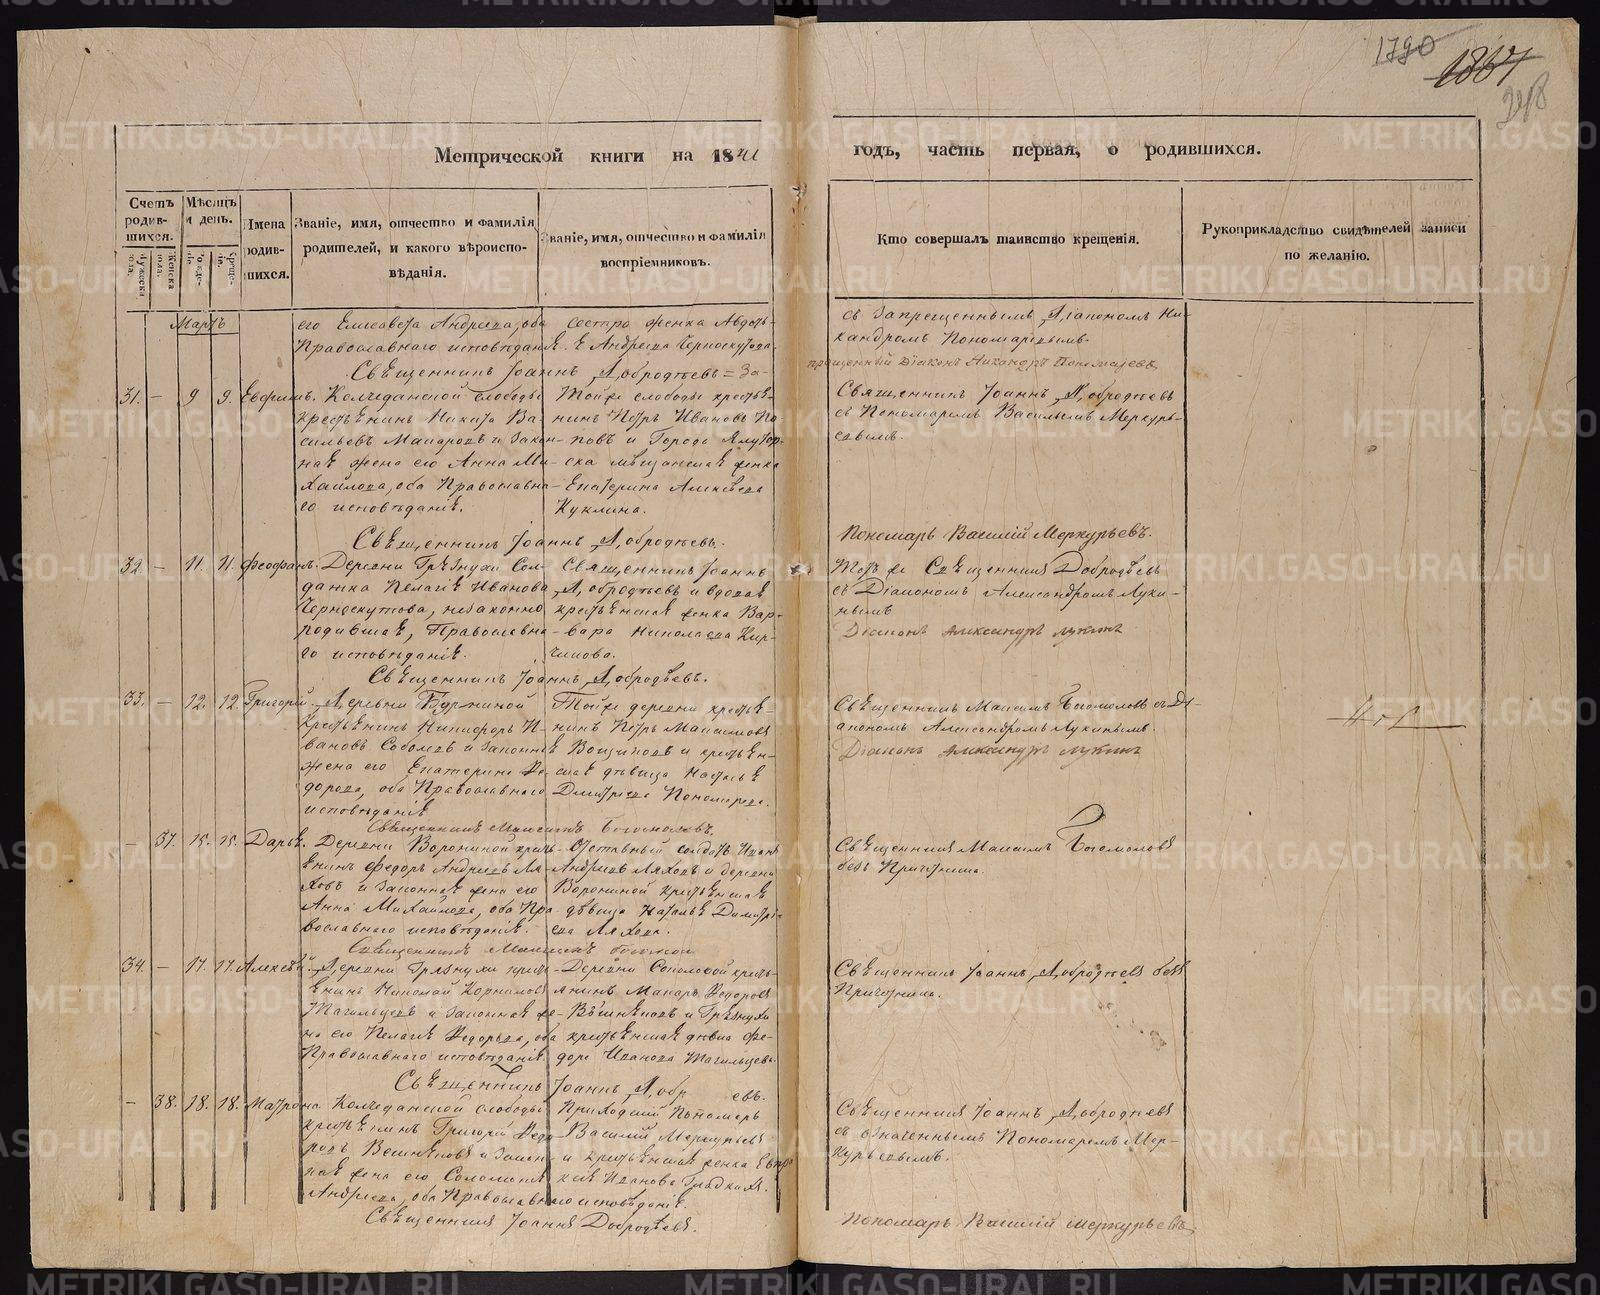 1790
1867
Метрической книги на 1841
годъ, часть первая, о родившихся.
Счетъ родив-шихся.
Мужеска пола.
Женска пола.
Мѣсяцъ и день.
Рожде-нія.
Креще-нія.
Имена родив-шихся.
Званіе, имя, отчество и фамилія
родителей, и какого вѣроиспо-
вѣданія.
Званіе, имя, отчество и фамилія
воспріемниковъ.
Кто совершалъ таинство крещенія.
Рукоприкладство свидѣтелей записи
по желанію.
Мартъ
его Елисавета Андреева, оба
Православнаго исповѣданія.
сестра женка Авдоть-
я Андреева Черноскутова.
съ запрещеннымъ Діакономъ Ни-
кандромъ Пономаревымъ.
Священникъ Іоаннъ Добродѣевъ = За-
прещенный Діаконъ Никандръ Пономаревъ
31. — 9 9. Евфимъ.
Колчеданской слободы
крестьянинъ Никита Ва-
сильевъ и закон-
ная жена его Анна Ми-
хайлова, оба Православна-
го исповѣданія.
Той же слободы крестья-
нинъ Петръ Ивановъ По-
повъ и Города Ялутор-
ска мѣщанская женка
Екатерина Алексѣева
Куклина.
Священникъ Іоаннъ Добродѣевъ
съ Пономаремъ Васильемъ Меркурь-
евымъ.
Священникъ Іоаннъ Добродѣевъ.
Пономарь Василій Меркурьевъ.
32. — 11. 11. Феофанъ.
Деревни Грязнухи Сол-
датка Пелагія Иванова
Черноскутова, незаконно
родившая, Православна-
го исповѣданія.
Священникъ Іоаннъ
Добродѣевъ и вдовая
крестьянская женка Вар-
вара Николаева Кир-
чикова.
Тотъ же Священникъ Добродѣевъ
съ Діакономъ Александромъ Луки-
нымъ
Діаконъ Александръ Лукинъ
Священникъ Іоаннъ Добродѣевъ.
33. — 12. 12. Григорій.
Деревни Бурниной
крестьянинъ Никифоръ И-
вановъ Соболевъ и законная
жена его Екатерина Фе-
дорова, оба Православнаго
исповѣданія
Той же деревни крестья-
нинъ Петръ Максимовъ
и крестьян-
ская дѣвица Наталья
Дмитріева Пономарева.
Священникъ Максимъ Богомоловъ съ Ді-
акономъ Александромъ Лукинымъ.
Діаконъ Александръ Лукинъ
Священникъ Максимъ Богомоловъ.
— 37. 15. 15. Дарья.
Деревни Ворониной кресть-
янинъ Федоръ Андреевъ Ля-
ховъ и законная жена его
Анна Михайлова, оба Пра-
вославнаго исповѣданія.
Отставный солдатъ Иванъ
Андреевъ Ляховъ и деревни
Ворониной крестьянская
дѣвица Наталья Димитрі-
ева Ляхова.
Священникъ Максимъ Богомоловъ
безъ Причетника.
Священникъ Максимъ Богомол
34. — 17. 17. Алексѣй.
Деревни Грязнухи кресть-
янинъ Николай Корниловъ
Тагильцевъ и законная же-
на его Пелагія Федорова, оба
Православнаго исповѣданія.
Деревни Соколовой кресть-
янинъ Макаръ Федоровъ
Вѣшняковъ и Грязнухи
крестьянская дѣвка Фе-
дора Иванова Тагильцева.
Священникъ Іоаннъ Добродѣевъ безъ
Причетника.
Священникъ Іоаннъ Добр евъ.
— 38. 18. 18. Матрона.
Колчеданской слободы
крестьянинъ Григорій Федо-
ровъ Вешняковъ и закон-
ная жена его Соломонія
Андреева, оба Православнаго исповѣданія.
Приходскій Пономарь
Василій Меркурьевъ
и крестьянская женка Евдо-
кія Иванова Гладкихъ.
Священникъ Іоаннъ Добродѣевъ
съ означеннымъ Пономаремъ Мер-
курьевымъ.
Священникъ Іоаннъ Добродѣевъ.
Пономарь Василій Меркурьевъ.
METRIKI.GASO-URAL.RU